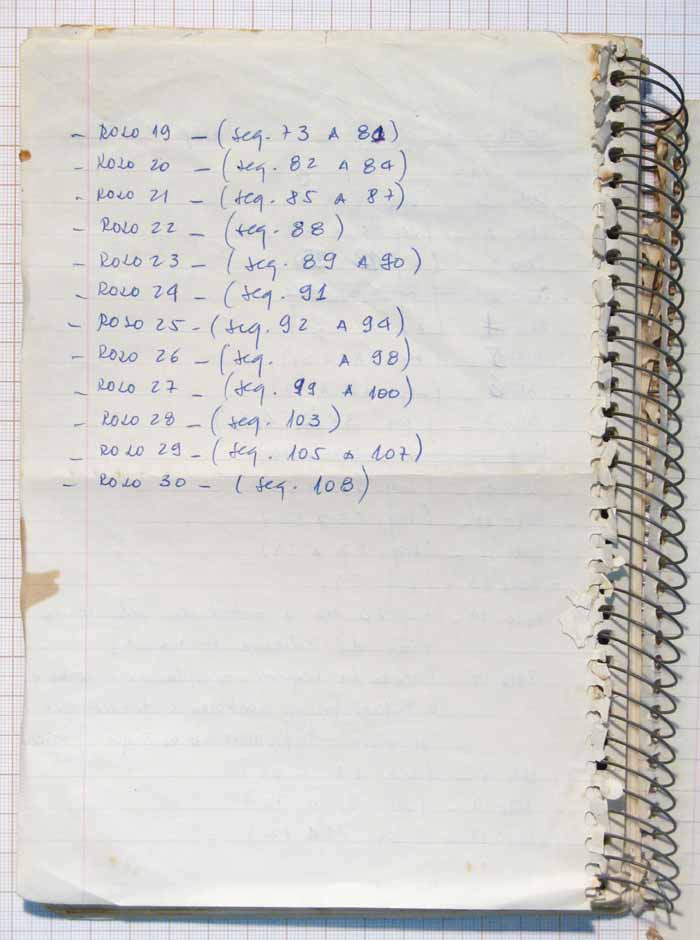 - ROLO 19 - (seq. 73 A 81)
- ROLO 20 - (seq. 82 A 84)
- ROLO 21 - (seq. 85 A 87)
- ROLO 22 - (seq. 88)
- ROLO 23 - (seq. 89 A 90)
- ROLO 24 - (seq. 91
- ROLO 25 - (seq. 92 A 94)
- ROLO 26 - (seq. A 98)
- ROLO 27 - (seq. 99 A 100)
- ROLO 28 - (seq. 103)
- ROLO 29 - (seq. 105 A 107)
- ROLO 30 - (seq. 108)